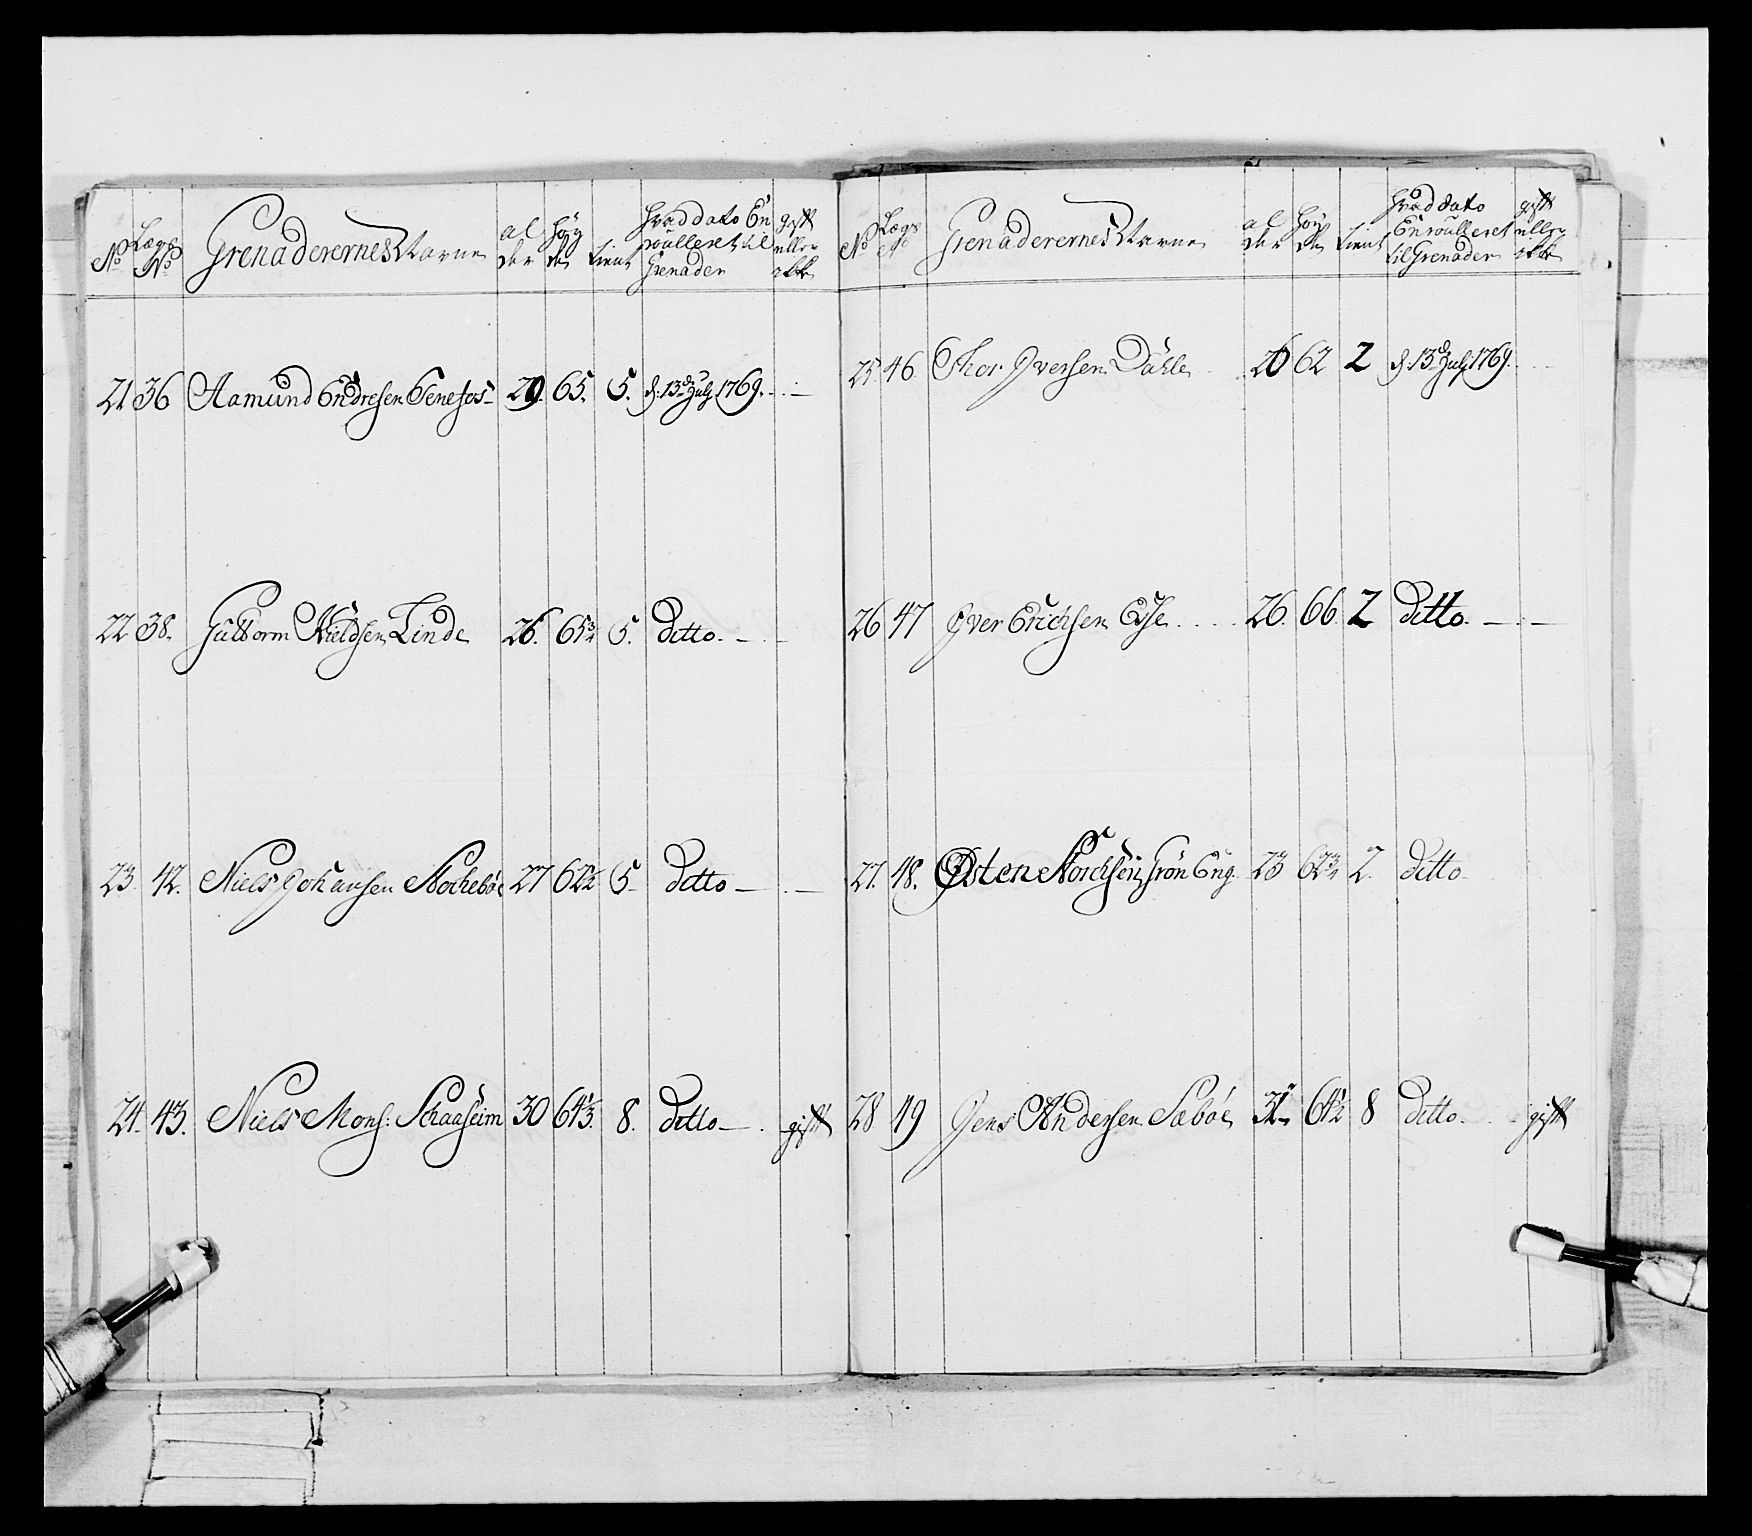 No Lægs No Grenaderernes Navne al der Høy de tient hvad dato En roulleret til Grenader gift eller ikke
21 36 Aamund Endresen Tenefos 29. 65. 5. d: 13de July 1769. - . -
22 38. Gulborm Nielsen Linde 26. 65 3/4 5. ditto. - . -
23. 42. Niels Johansen Nochebøe 27 62 1/2 5. ditto - . -
24. 43. Niels Mons: Schaaheim 30 64 1/3. 8. ditto - . gift
No Lægs No Grenaderernes Navne al der Høy de tient hvad dato Enroulleret til Grenader gift eller ikke
25 46 Thor Iversen Dahle 26 62 2 d: 13de July 1769. . . .
26 47 Iver Erichsen Eye . . . . 26. 66. 2 ditto. - . -
27. 48. Østen Norchsen Grøn Eng 23 62 3/4 2. ditto
28 49 Jens Andersen Sæbøe 31 64 1/2 8 ditto. . . . gift